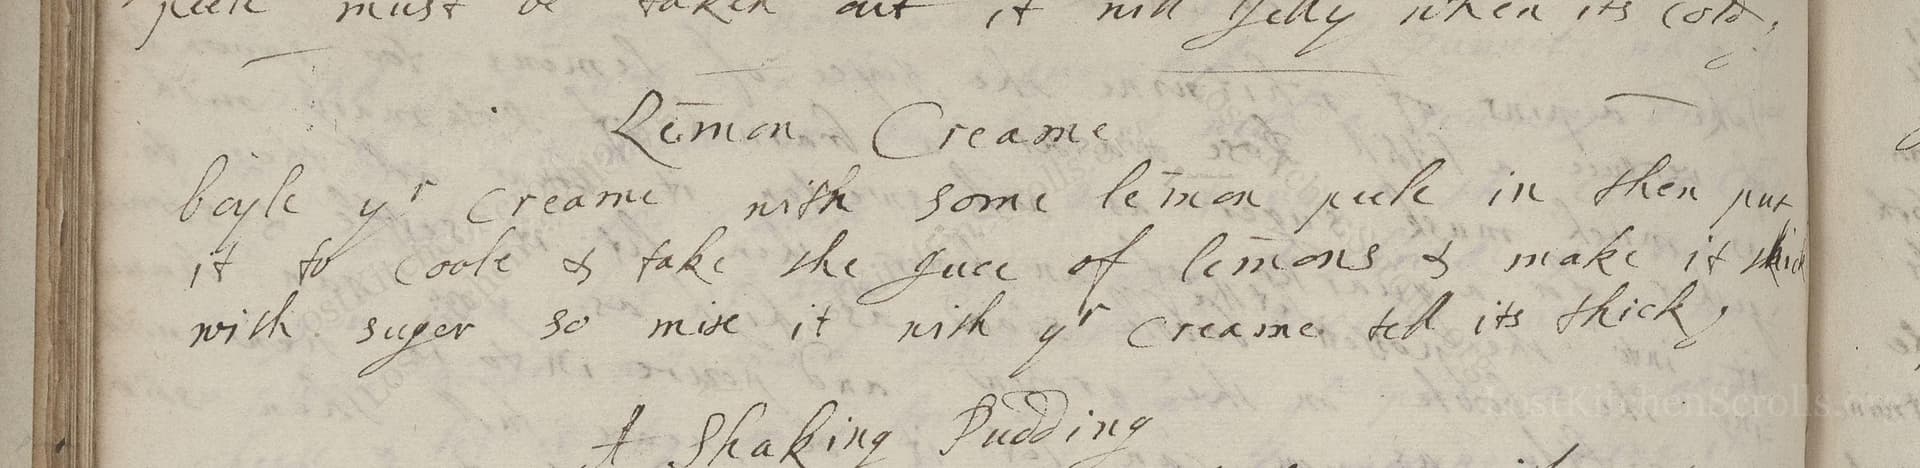 peele must be taken out it will Jelly when its Cold,
Lem̄on Creame
boyle yr Creame with some lem̄on peele in then put
it to Coole & take the Juce of lem̄ons & make it thick
with suger so mixe it with yr Creame tell its thick,
A Shaking Pudding
LostKitchenScrolls